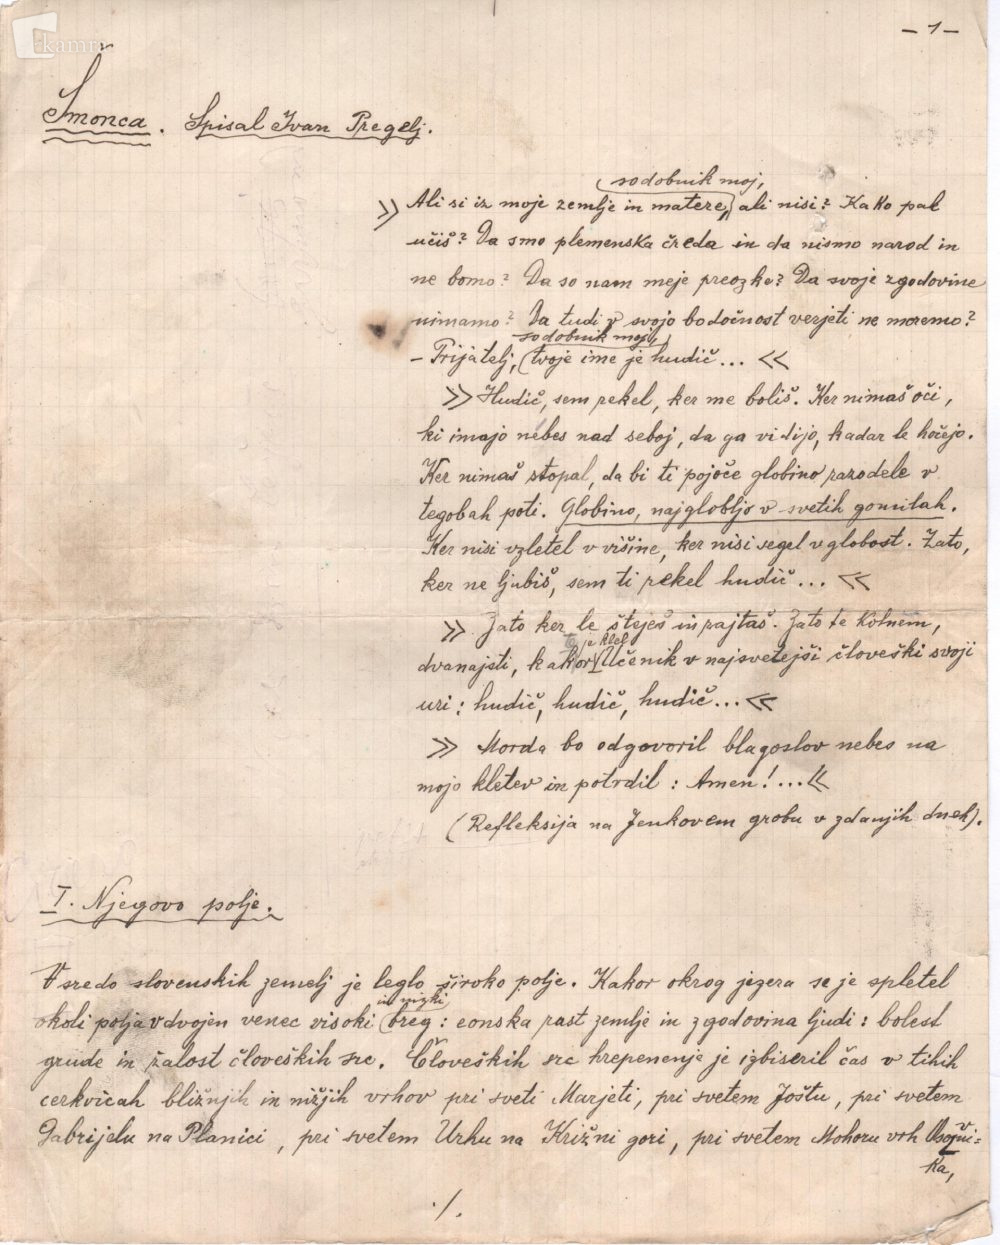 kamra
- 1 -
Šmonca. Spisal Ivan Pregelj.
sodobnik moj,
» Ali si iz moje zemlje in matere, ali nisi? Kako pak
učiš? Da smo plemenska čreda in da nismo narod in
ne bomo? Da so nam meje preozke? Da svoje zgodovine
nimamo? Da tudi v svojo bodočnost verjeti ne moremo?
sodobnik moj,
- Prijatelj, tvoje ime je hudič... «
» Hudič, sem rekel, ker me boliš. Ker nimaš oči,
ki imajo nebes nad seboj, da ga vidijo, kadar le hočejo.
Ker nimaš stopal, da bi ti pojoče globino razodele v
tegobah poti. Globino, najglobljo v svetih gomilah.
Ker nisi vzletel v višine, ker nisi segel v globost. Zato,
ker ne ljubiš, sem ti rekel hudič... «
» Zato ker le šteješ in rajtaš. Zato te kolnem,
je klel
dvanajsti, kakor Učenik v najsvetejši človeški svoji
uri: hudič, hudič, hudič... «
» Morda bo odgovoril blagoslov nebes na
mojo kletev in potrdil: Amen!... «
(Refleksija na Jenkovem grobu v zdanjih dneh).
I. Njegovo polje.
V sredo slovenskih zemelj je leglo široko polje. Kakor okrog jezera se je spletel
in nizki
okoli polja v dvojen venec visoki breg: eonska rast zemlje in zgodovina ljudi: bolest
grude in žalost človeških src. Človeških src hrepenenje je izbiseril čas v tihih
cerkvicah bližnjih in nižjih vrhov pri sveti Marjeti, pri svetem Joštu, pri svetem
Gabrijelu na Planici, pri svetem Urhu na Križni gori, pri svetem Mohorju vrh Osovni=
ka,
./.